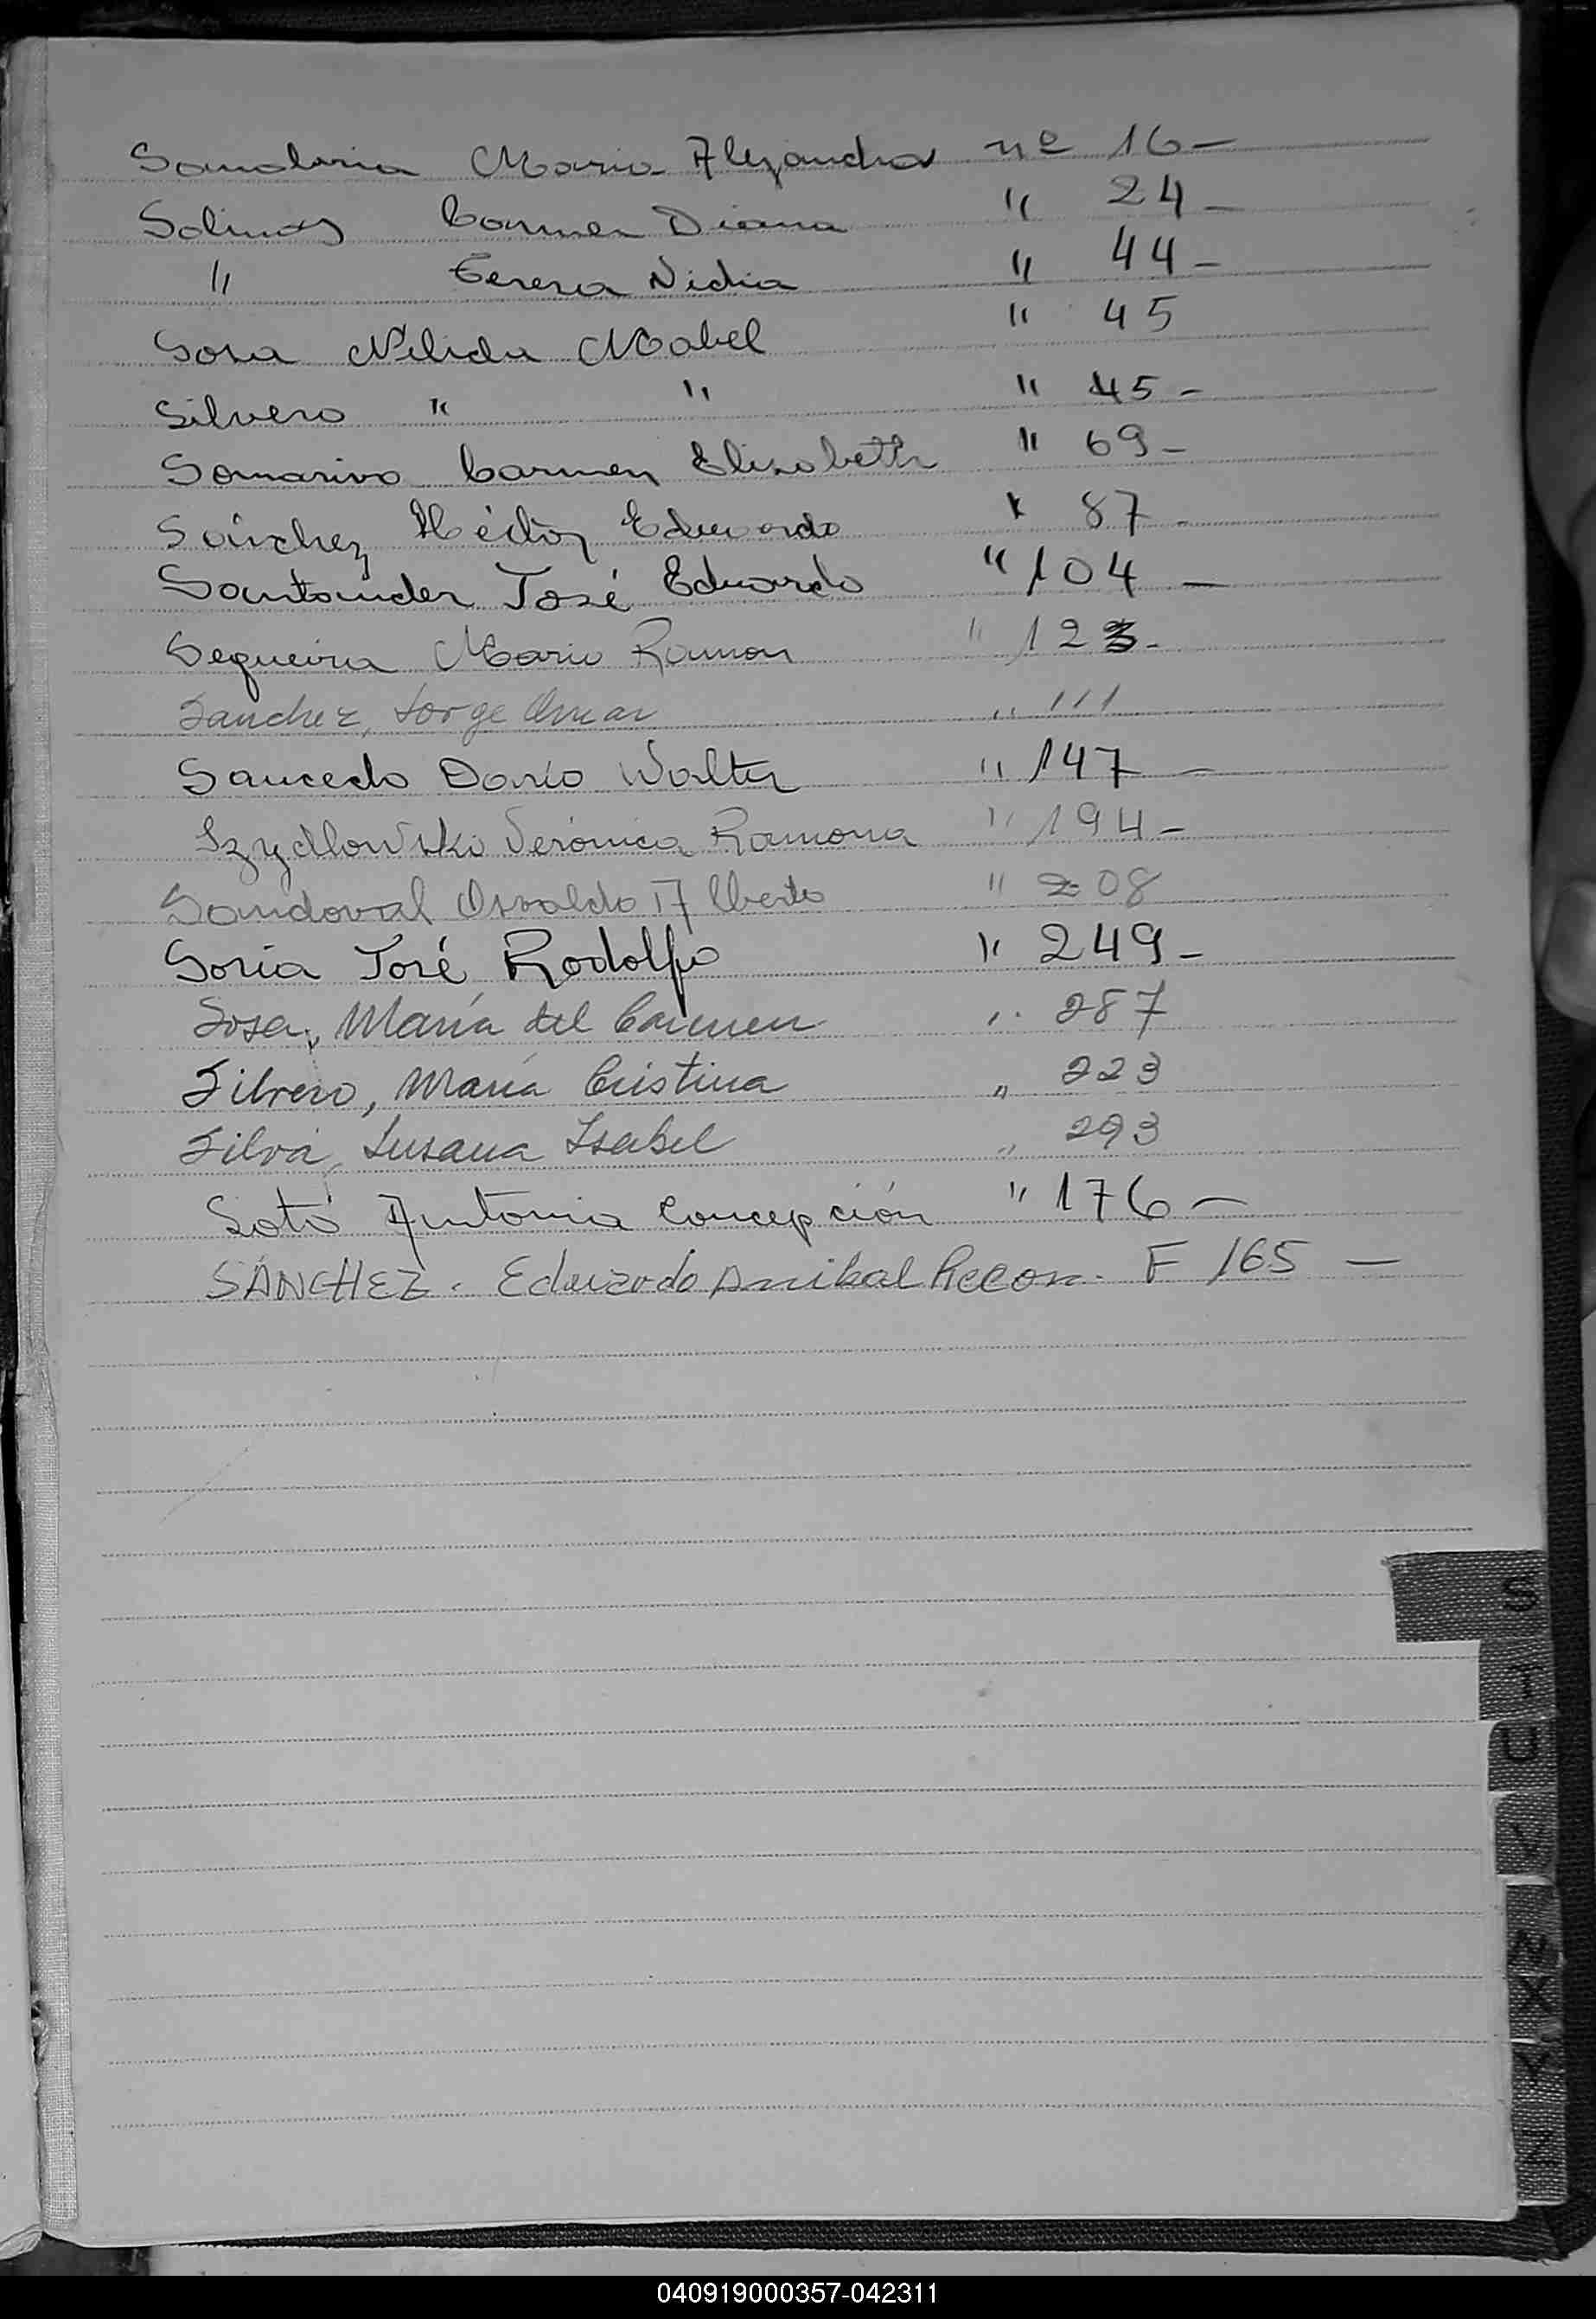 Sanabria Maria Alejandra nº 16-
Salinas Carmen Diana " 24-
" Teresa Nidia " 44-
Sosa Nelida Mabel " 45
Silvero " " " 45-
Somariva Carmen Elisabeth " 69-
Sánchez Héctor Eduardo " 87-
Santander José Eduardo " 104-
Sequeira Mario Ramon " 123-
Sanchez, Jorge Omar " 111
Saucedo Darío Walter " 147-
Szydlowski Verónica Ramona " 194-
Sandoval Osvaldo Alberto " 208
Soria José Rodolfo " 249-
Sosa, María del Carmen " 287
Silvero, María Cristina " 223
Silva, Susana Isabel " 293
Soto Antonia Concepción " 176-
SÁNCHEZ. Eduardo Anibal Recon. F 165 -
S
T
U
V
W
X
Y
Z
040919000357-042311